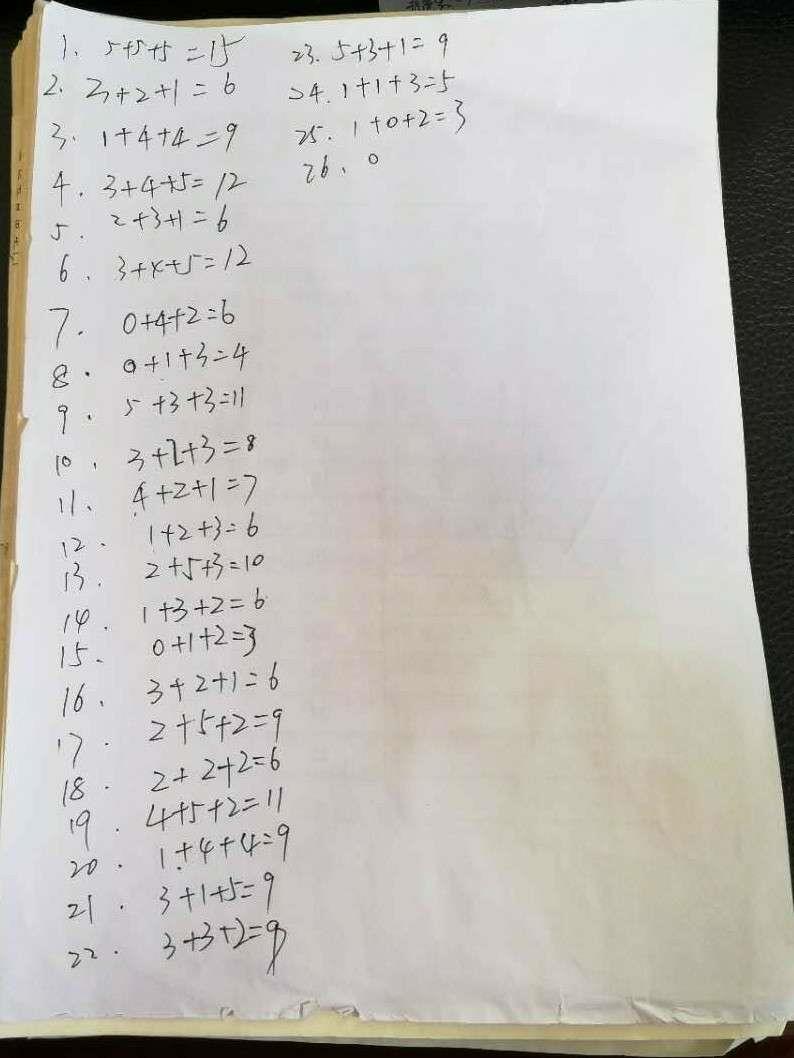 1. 5+5+5=15
2. 3+2+1=6
3. 1+4+4=9
4. 3+4+5=12
5. 2+3+1=6
6. 3+4+5=12
7. 0+4+2=6
8. 0+1+3=4
9. 5+3+3=11
10. 3+2+3=8
11. 4+2+1=7
12. 1+2+3=6
13. 2+5+3=10
14. 1+3+2=6
15. 0+1+2=3
16. 3+2+1=6
17. 2+5+2=9
18. 2+2+2=6
19. 4+5+2=11
20. 1+4+4=9
21. 3+1+5=9
22. 3+3+2=9
23. 5+3+1=9
24. 1+1+3=5
25. 1+0+2=3
26. 0